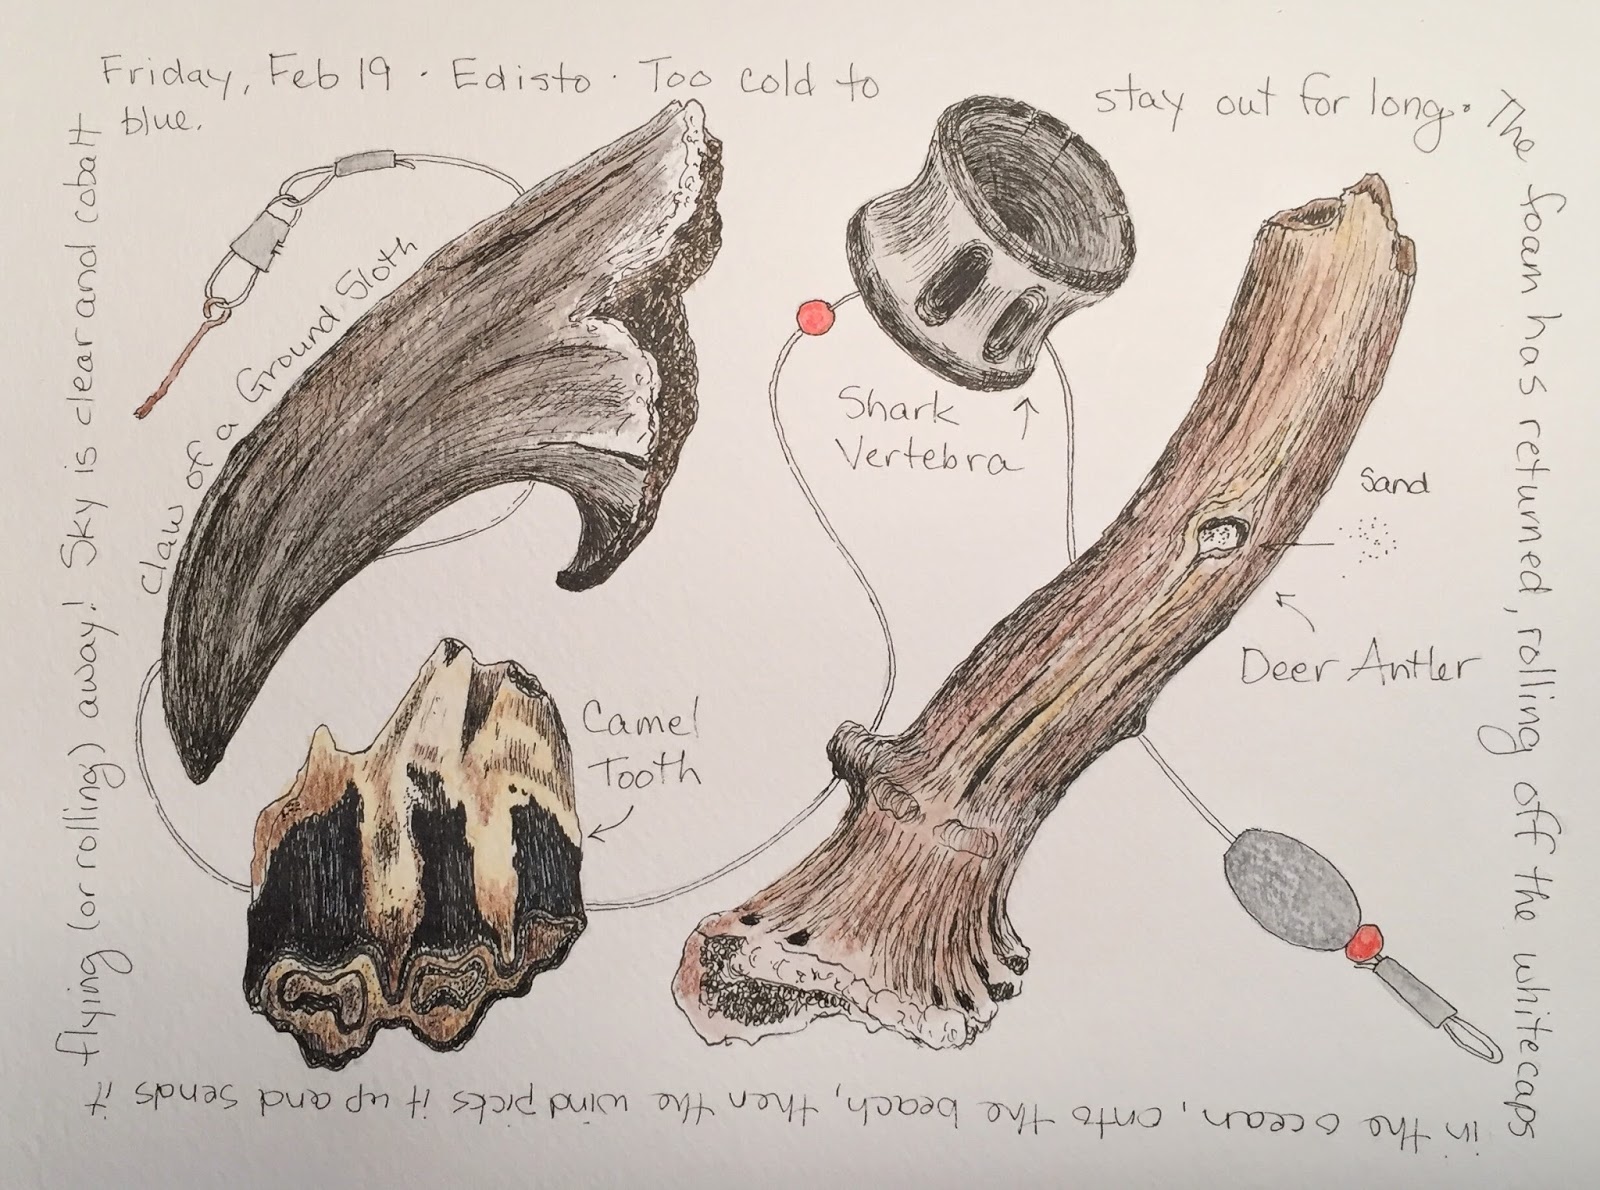 Friday, Feb 19 · Edisto · Too cold to stay out for long. The
foam has returned, rolling off the whitecaps
in the ocean, onto the beach, then the wind picks it up and sends it
flying (or rolling) away! Sky is clear and cobalt
blue.
Claw of a Ground Sloth
Shark
Vertebra
Sand
Deer Antler
Camel
Tooth